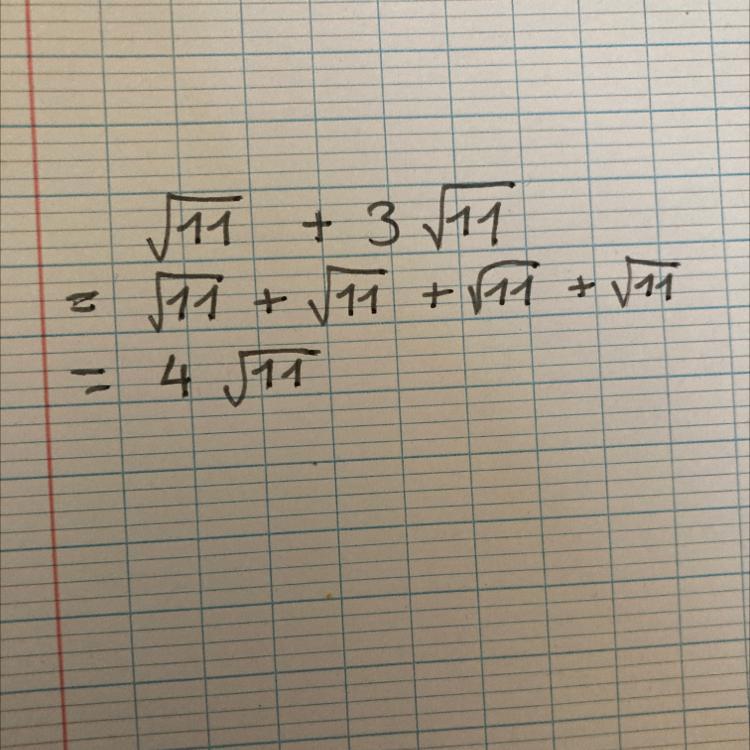 √11 + 3 √11
= √11 + √11 + √11 + √11
= 4 √11